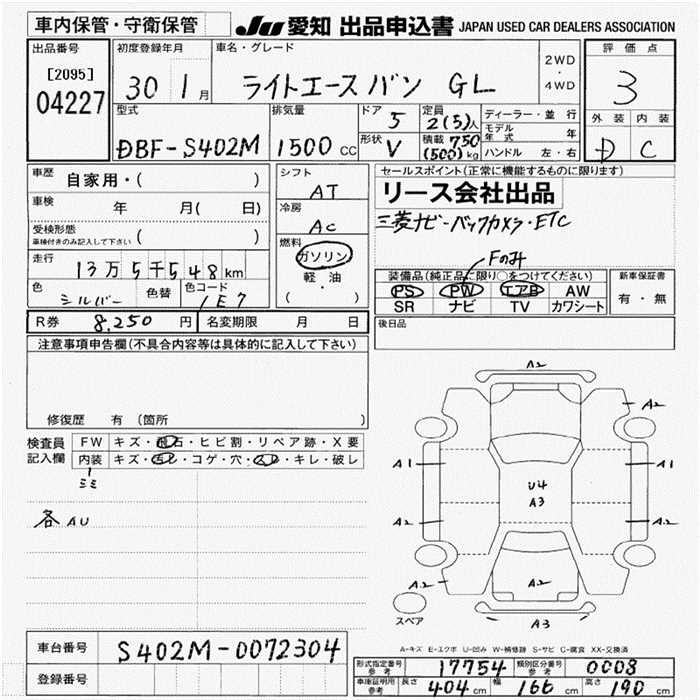 車内保管・守衛保管 JU 愛知 出品申込書 JAPAN USED CAR DEALERS ASSOCIATION
出品番号 初度登録年月 車名・グレード 評価点
[2095] 04227 30 1月 ライトエース バン GL 2WD・4WD 3
型式 排気量 ドア 5 定員 2(5)人 ディーラー・並行 外装 内装
DBF-S402M 1500 CC 形状 V 積載 750(500)kg モデル年式 年 D C
ハンドル 左・右
車歴 自家用・( ) シフト AT セールスポイント(正常に機能するものに限ります)
車検 年 月( 日) 冷房 AC リース会社出品
受検形態 車検付きのみ記入して下さい ( ) 三菱ナビ-バックカメラ・ETC
走行 13万5千548km 燃料 ガソリン Fのみ
軽・油
( )
装備品(純正品に限り○をつけてください) 新車保証書
色 シルバー 色替 色コード 1E7 PS PW エアB AW 有・無
SR ナビ TV カワシート
R券 8,250円 名変期限 月 日 後日品
注意事項申告欄(不具合内容等は具体的に記入して下さい)
修復歴 有 (箇所 )
検査員 FW キズ・飛石・ヒビ割・リペア跡・X要
記入欄 内装 キズ・汚レ・コゲ・穴・スレ・キレ・破レ
ミミ
各AU
A2
A2
A1 A1
U4
A3
A2 A2
A2 A2 A2
A3
スペア
A-キズ E-エクボ U-凹み W-補修跡 S-サビ C-腐食 XX-交換済
車台番号 S402M-0072304
登録番号
形式指定番号 参考 17754 類別区分番号 参考 0008
車庫証明用 参考 長さ 404cm 幅 166cm 高さ 190cm